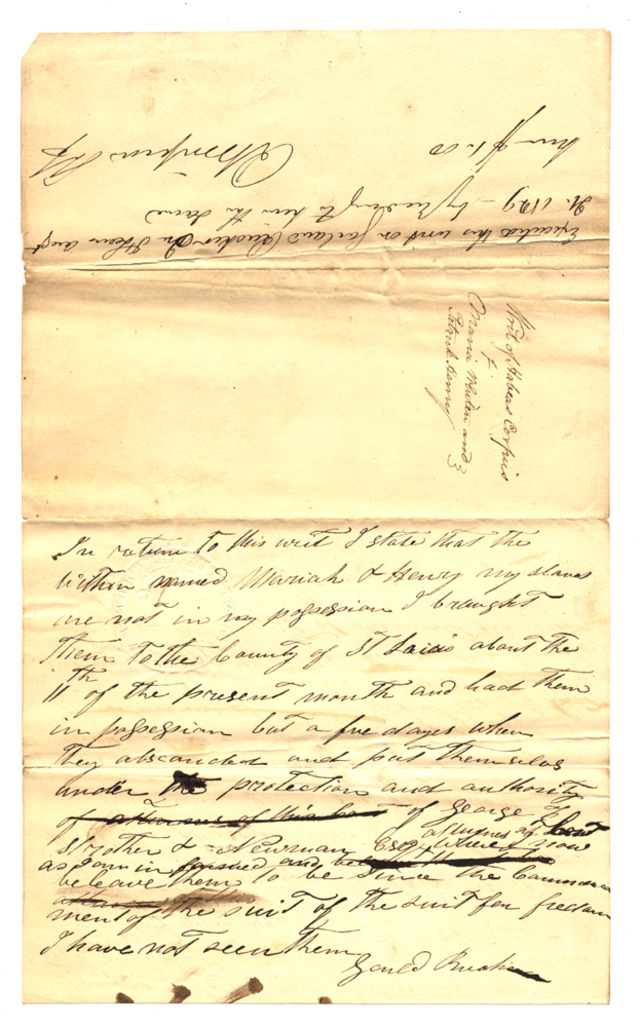 Executed this writ on Garland Rucker In St Louis augt
21. 1829 — by reading to him the same
Simpson Shff
Writ of Habeas Corpus
Maria Whiten and
Patrick Henry
In return to this writ I state that the
within named Mariah & Henry my slaves
are not in my possession I braught
them to the County of St Louis about the
11th of the present month and had them
in possession but a few dayes when
they absconded and put themselves
under the protection and authority
of attornies of this Cort of George F.
Strother & Newman Esqr attornies of Cort where I now
as I am informed and
beleave them to be Since the Commence
ment of the suit of the suit for freedom
I have not seen them
Garld Rucker